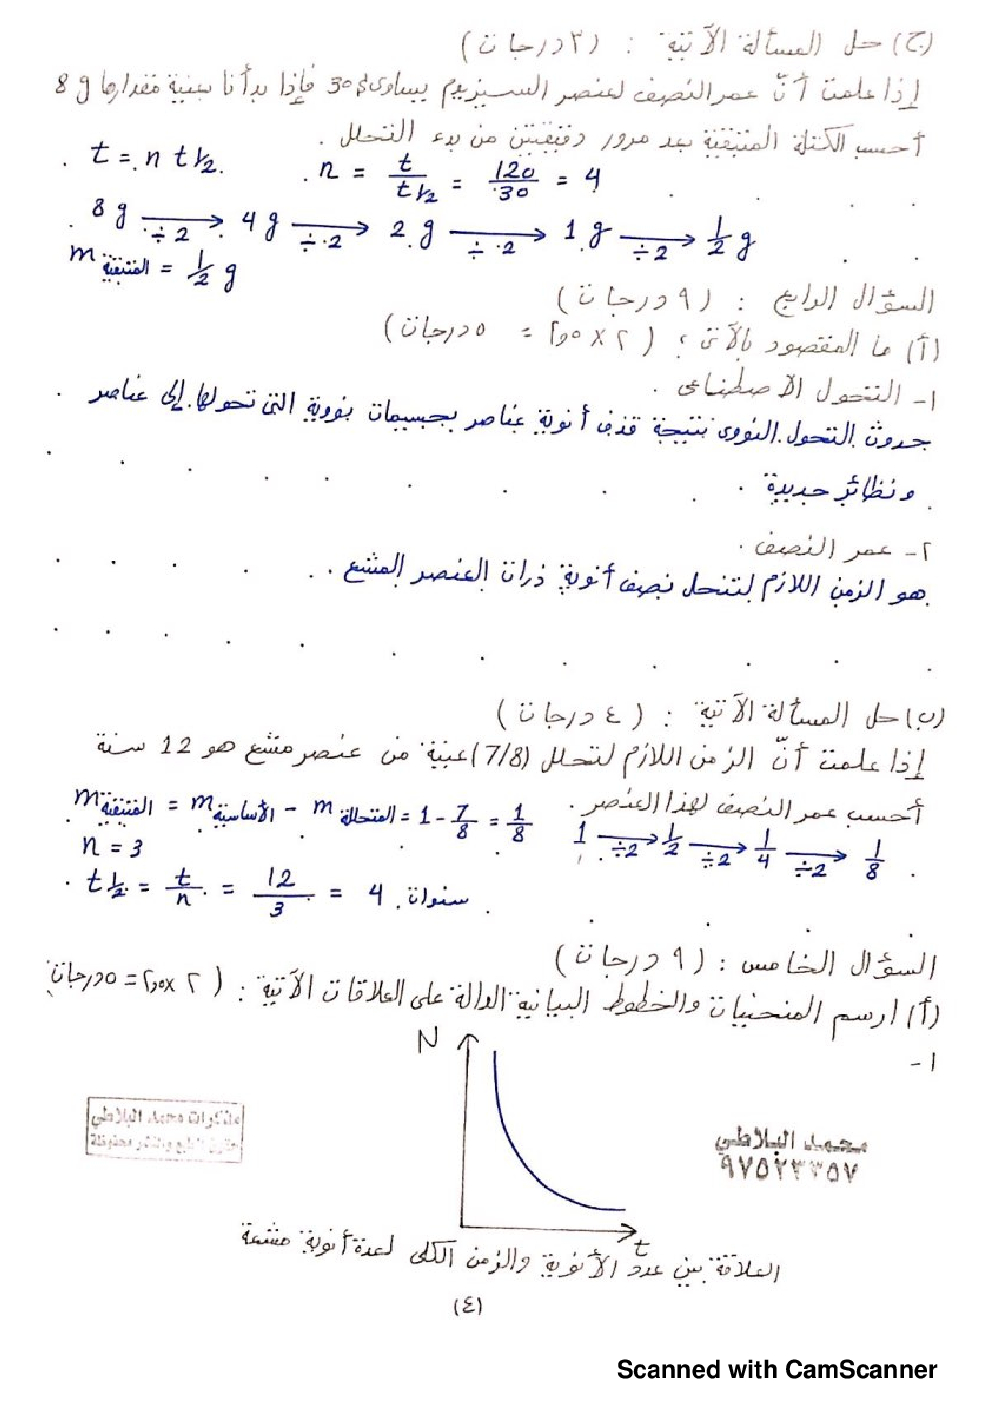 (ج) حل المسألة الآتية : (٣ درجات)
إذا علمت أنّ عمر النصف لعنصر السيزيوم يساوى 30 s فإذا بدأنا بعينة مقدارها 8 g
أحسب الكتلة المتبقية بعد مرور دقيقتين من بدء التحلل .
t = n t½ . n = t/t½ = 120/30 = 4
8 g →÷2 4 g →÷2 2 g →÷2 1 g →÷2 ½ g
m المتبقية = ½ g
السؤال الرابع : (٩ درجات)
(أ) ما المقصود بالآتى : (٢ × ٢٫٥ = ٥ درجات)
١- التحول الاصطناعى .
حدوث التحول النووى نتيجة قذف أنوية عناصر بجسيمات نووية التى تحولها إلى عناصر
ونظائر جديدة .
٢- عمر النصف .
هو الزمن اللازم لتنحل نصف أنوية ذرات العنصر المشع .
(ب) حل المسألة الآتية : (٤ درجات)
إذا علمت أنّ الزمن اللازم لتحلل (7/8) عينة من عنصر مشع هو 12 سنة
أحسب عمر النصف لهذا العنصر .
m المتبقية = m الأساسية − m المتحللة = 1 - 7/8 = 1/8
1 →÷2 1/2 →÷2 1/4 →÷2 1/8
n = 3
t½ = t/n = 12/3 = 4 سنوات .
السؤال الخامس : (٩ درجات)
(أ) ارسم المنحنيات والخطوط البيانية الدالة على العلاقات الآتية : (٢ × ٢٫٥ = ٥ درجات)
١-
N
مذكرات محمد البلاطي
حقوق الطبع والنشر محفوظة
محمد البلاطي
٩٧٥٢٣٣٥٧
t
العلاقة بين عدد الأنوية والزمن الكلى لعدة أنوية مشعة
(٤)
Scanned with CamScanner